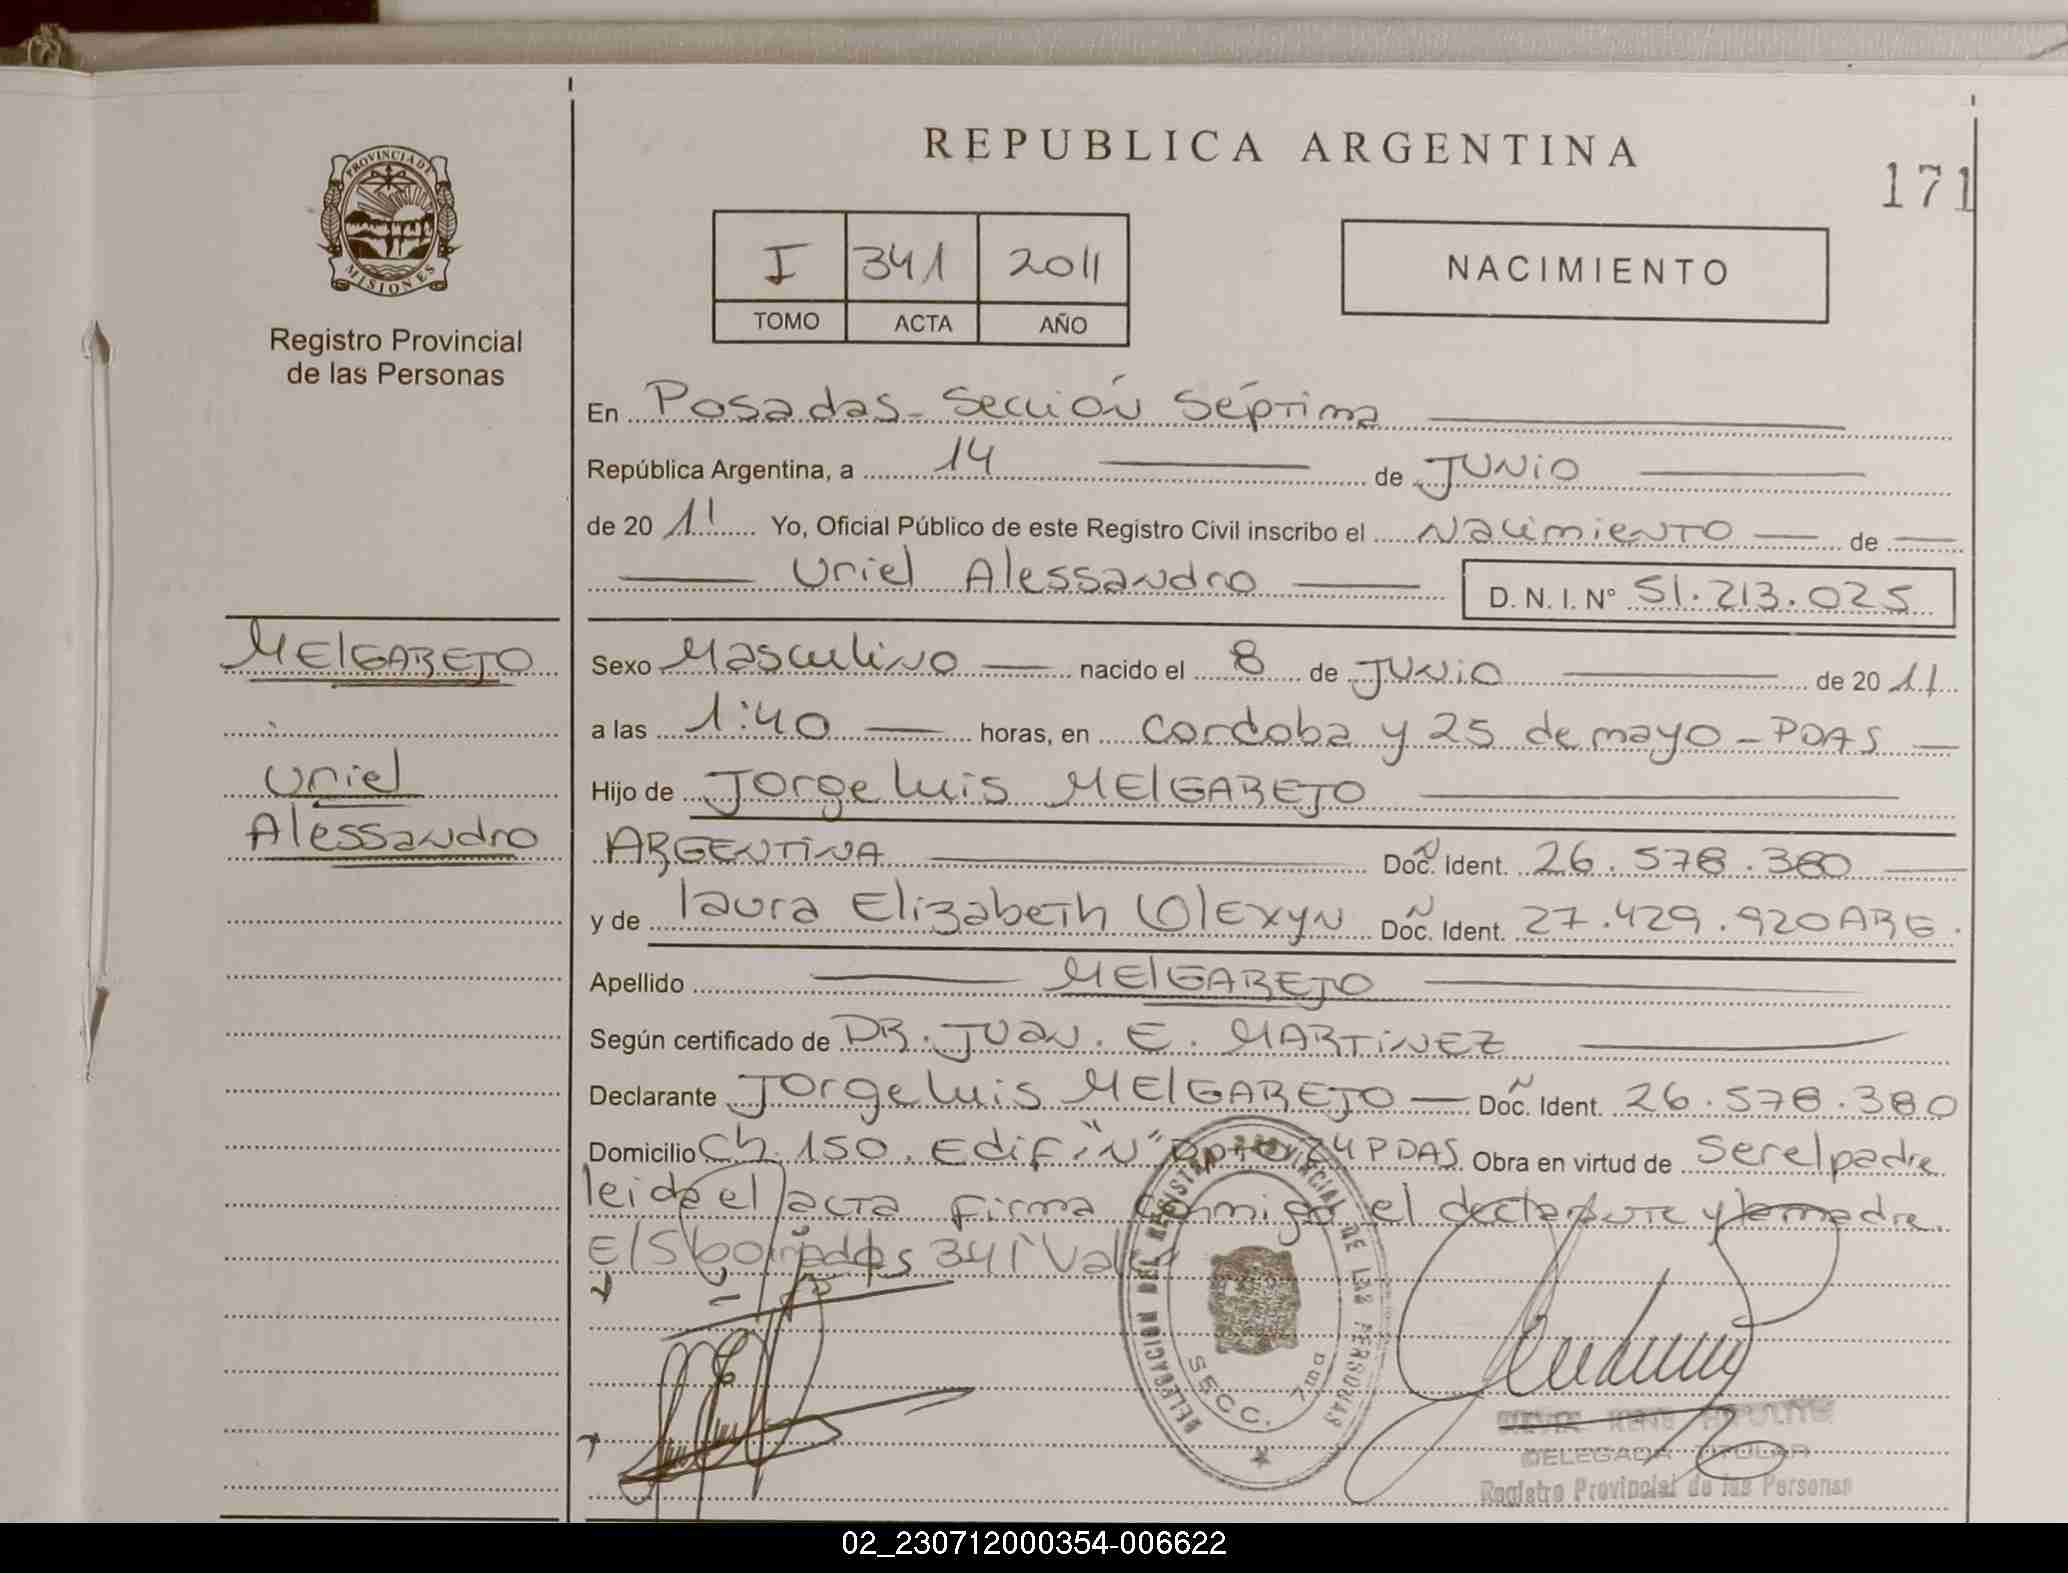 REPUBLICA ARGENTINA
171
PROVINCIA DE
MISIONES
Registro Provincial
de las Personas
I 341 2011
TOMO ACTA AÑO
NACIMIENTO
En Posadas - Sección Séptima
República Argentina, a 14 de JUNIO
de 20 11 Yo, Oficial Público de este Registro Civil inscribo el Nacimiento de
Uriel Alessandro D. N. I. N° 51.213.025
MELGAREJO
Uriel
Alessandro
Sexo Masculino nacido el 8 de JUNIO de 20 11
a las 1:40 horas, en Cordoba y 25 de mayo - PDAS
Hijo de Jorge Luis MELGAREJO
ARGENTINA Doc. Ident. 26.578.380
y de Laura Elizabeth OLEXYN Doc. Ident. 27.429.920 ARG.
Apellido MELGAREJO
Según certificado de DR. JUAN. E. MARTINEZ
Declarante Jorge Luis MELGAREJO Doc. Ident. 26.578.380
Domicilio Ch. 150. Edif "N" Dpto 24 PDAS Obra en virtud de ser el padre
leida el acta firma conmigo el declarante y la madre.
E/S 341 Vale
DELEGACION DEL REGISTRO PROVINCIAL DE LAS PERSONAS
SECC. 7ma
DELEGADA TITULAR
Registro Provincial de las Personas
02_230712000354-006622